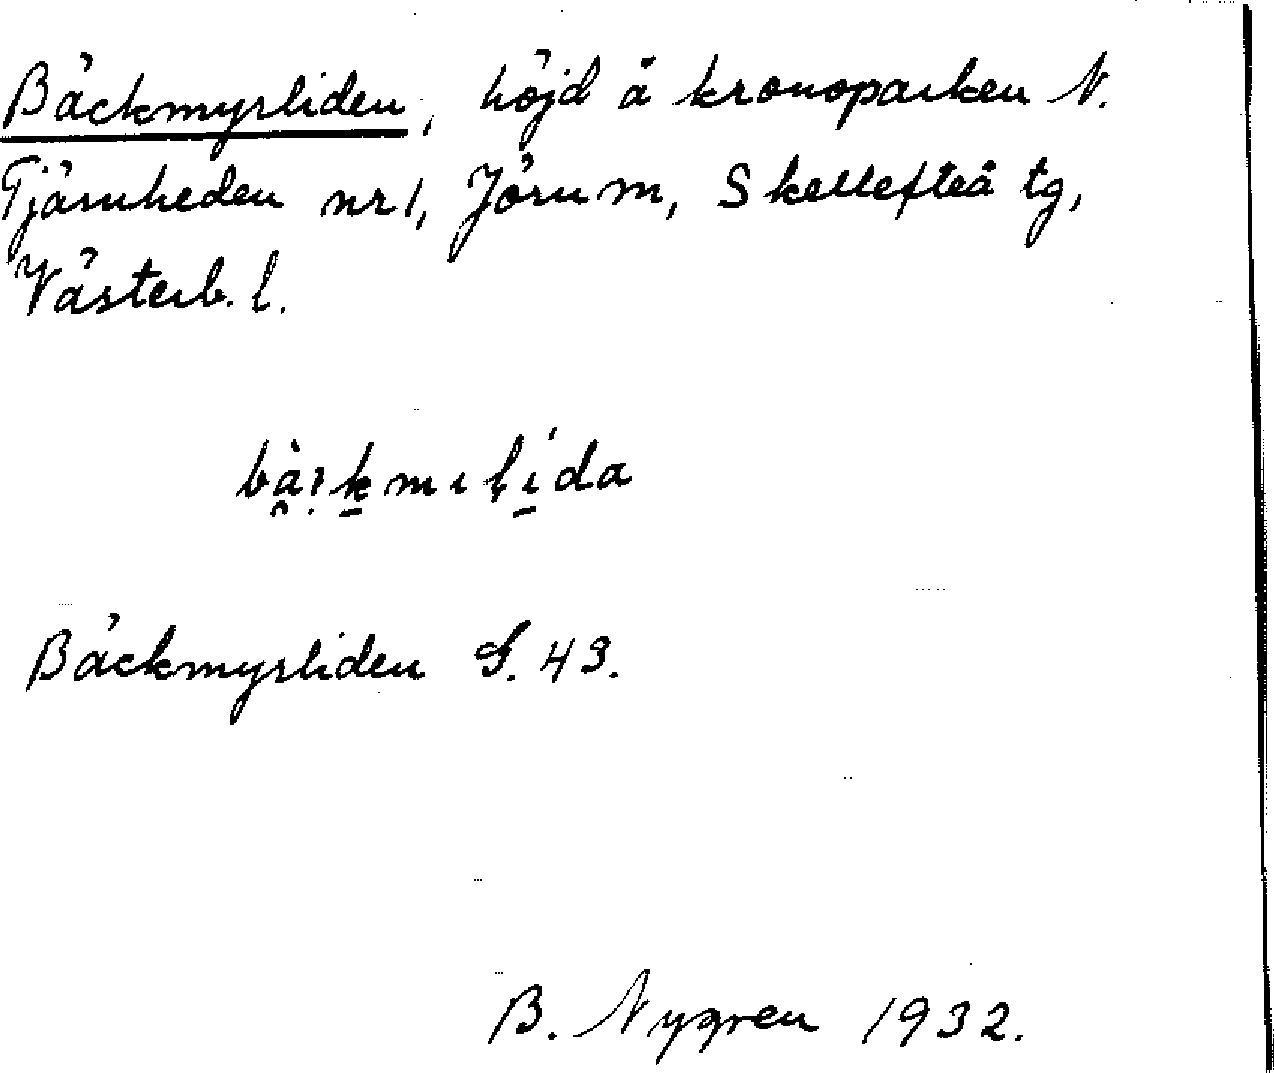 Bäckmyrliden, höjd å kronoparken N.
Tjärnheden nr 1, Jörn m, Skellefteå tg,
Västerb. l.
Bäckmyrliden S. 43.
B. Nygren 1932.